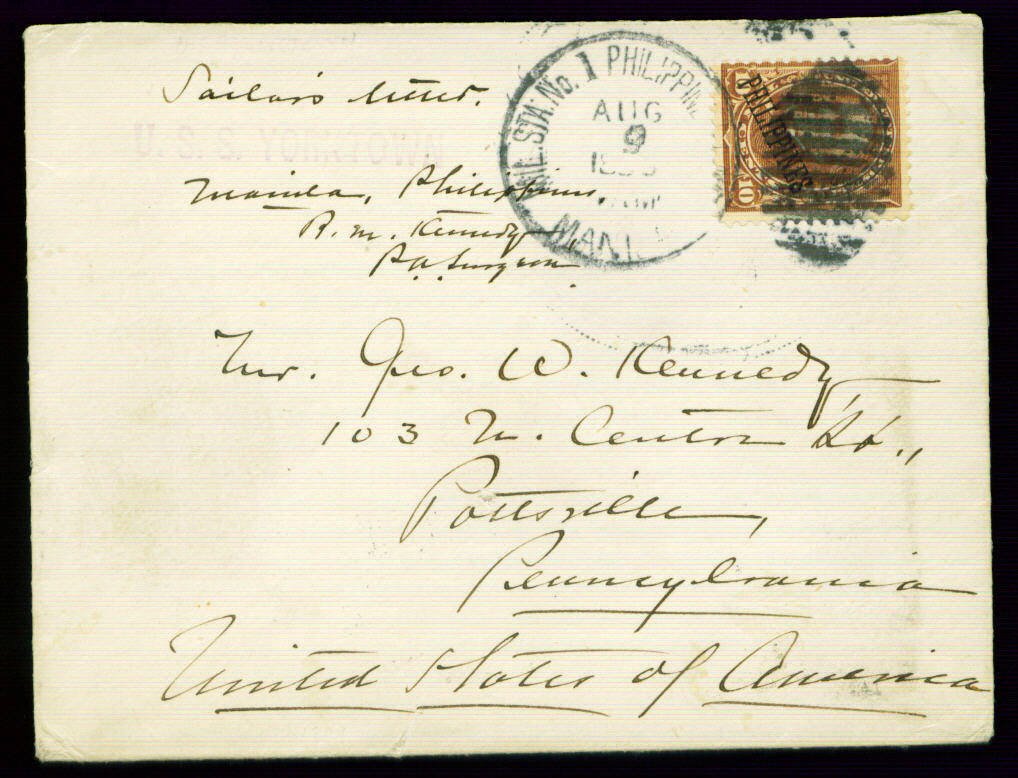 Sailor's letter.
U. S. S. YORKTOWN
Manila, Philippines,
R. M. Kennedy,
P.A. Surgeon
MIL. STA. No. 1 PHILIPPINE
AUG
9
AM
MANIL
PHILIPPINES
10 CENTS 10
Mr. Geo. W. Kennedy
103 N. Centre St.,
Pottsville,
Pennsylvania
United States of America